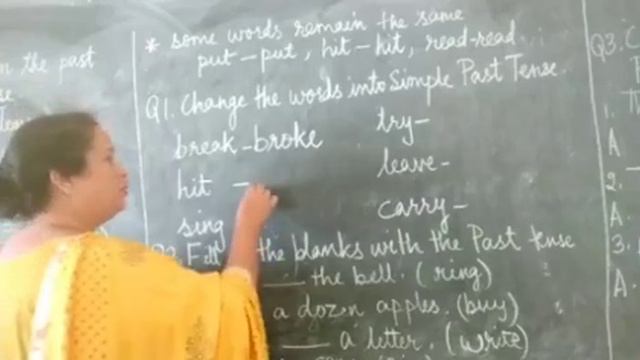 n the past
* some words remain the same
put - put, hit - hit, read - read
Q1. Change the words into Simple Past Tense.
break - broke
try -
hit -
leave -
sing
carry -
Fill the blanks with the Past tense
___ the bell. (ring)
a dozen apples. (buy)
___ a letter. (write)
Q3.
1.
A
2.
A.
3.
A.